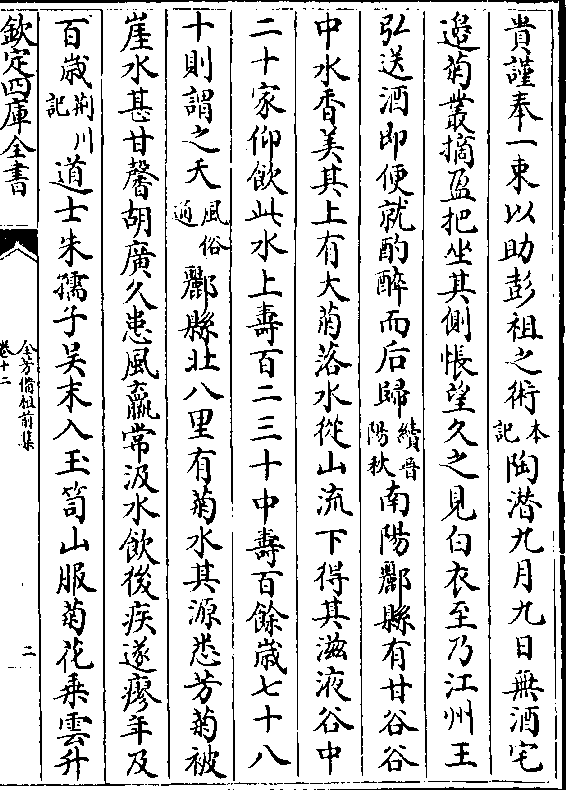 貴謹奉一束以助彭祖之術本記陶潛九月九日無酒宅
邉菊叢摘盈把坐其側悵望久之見白衣至乃江州王
弘送酒即便就酌醉而后歸續晉陽秋南陽酈縣有甘谷谷
中水香美其上有大菊落水從山流下得其滋液谷中
二十家仰飲此水上壽百二三十中壽百餘歲七十八
十則謂之夭風俗通酈縣北八里有菊水其源悉芳菊被
崖水甚甘馨胡廣久患風羸常汲水飲後疾遂瘳年及
百歲荆川記道士朱孺子吴末入玉笥山服菊花乗雲升
欽定四庫全書
全芳備祖前集
卷十二
二